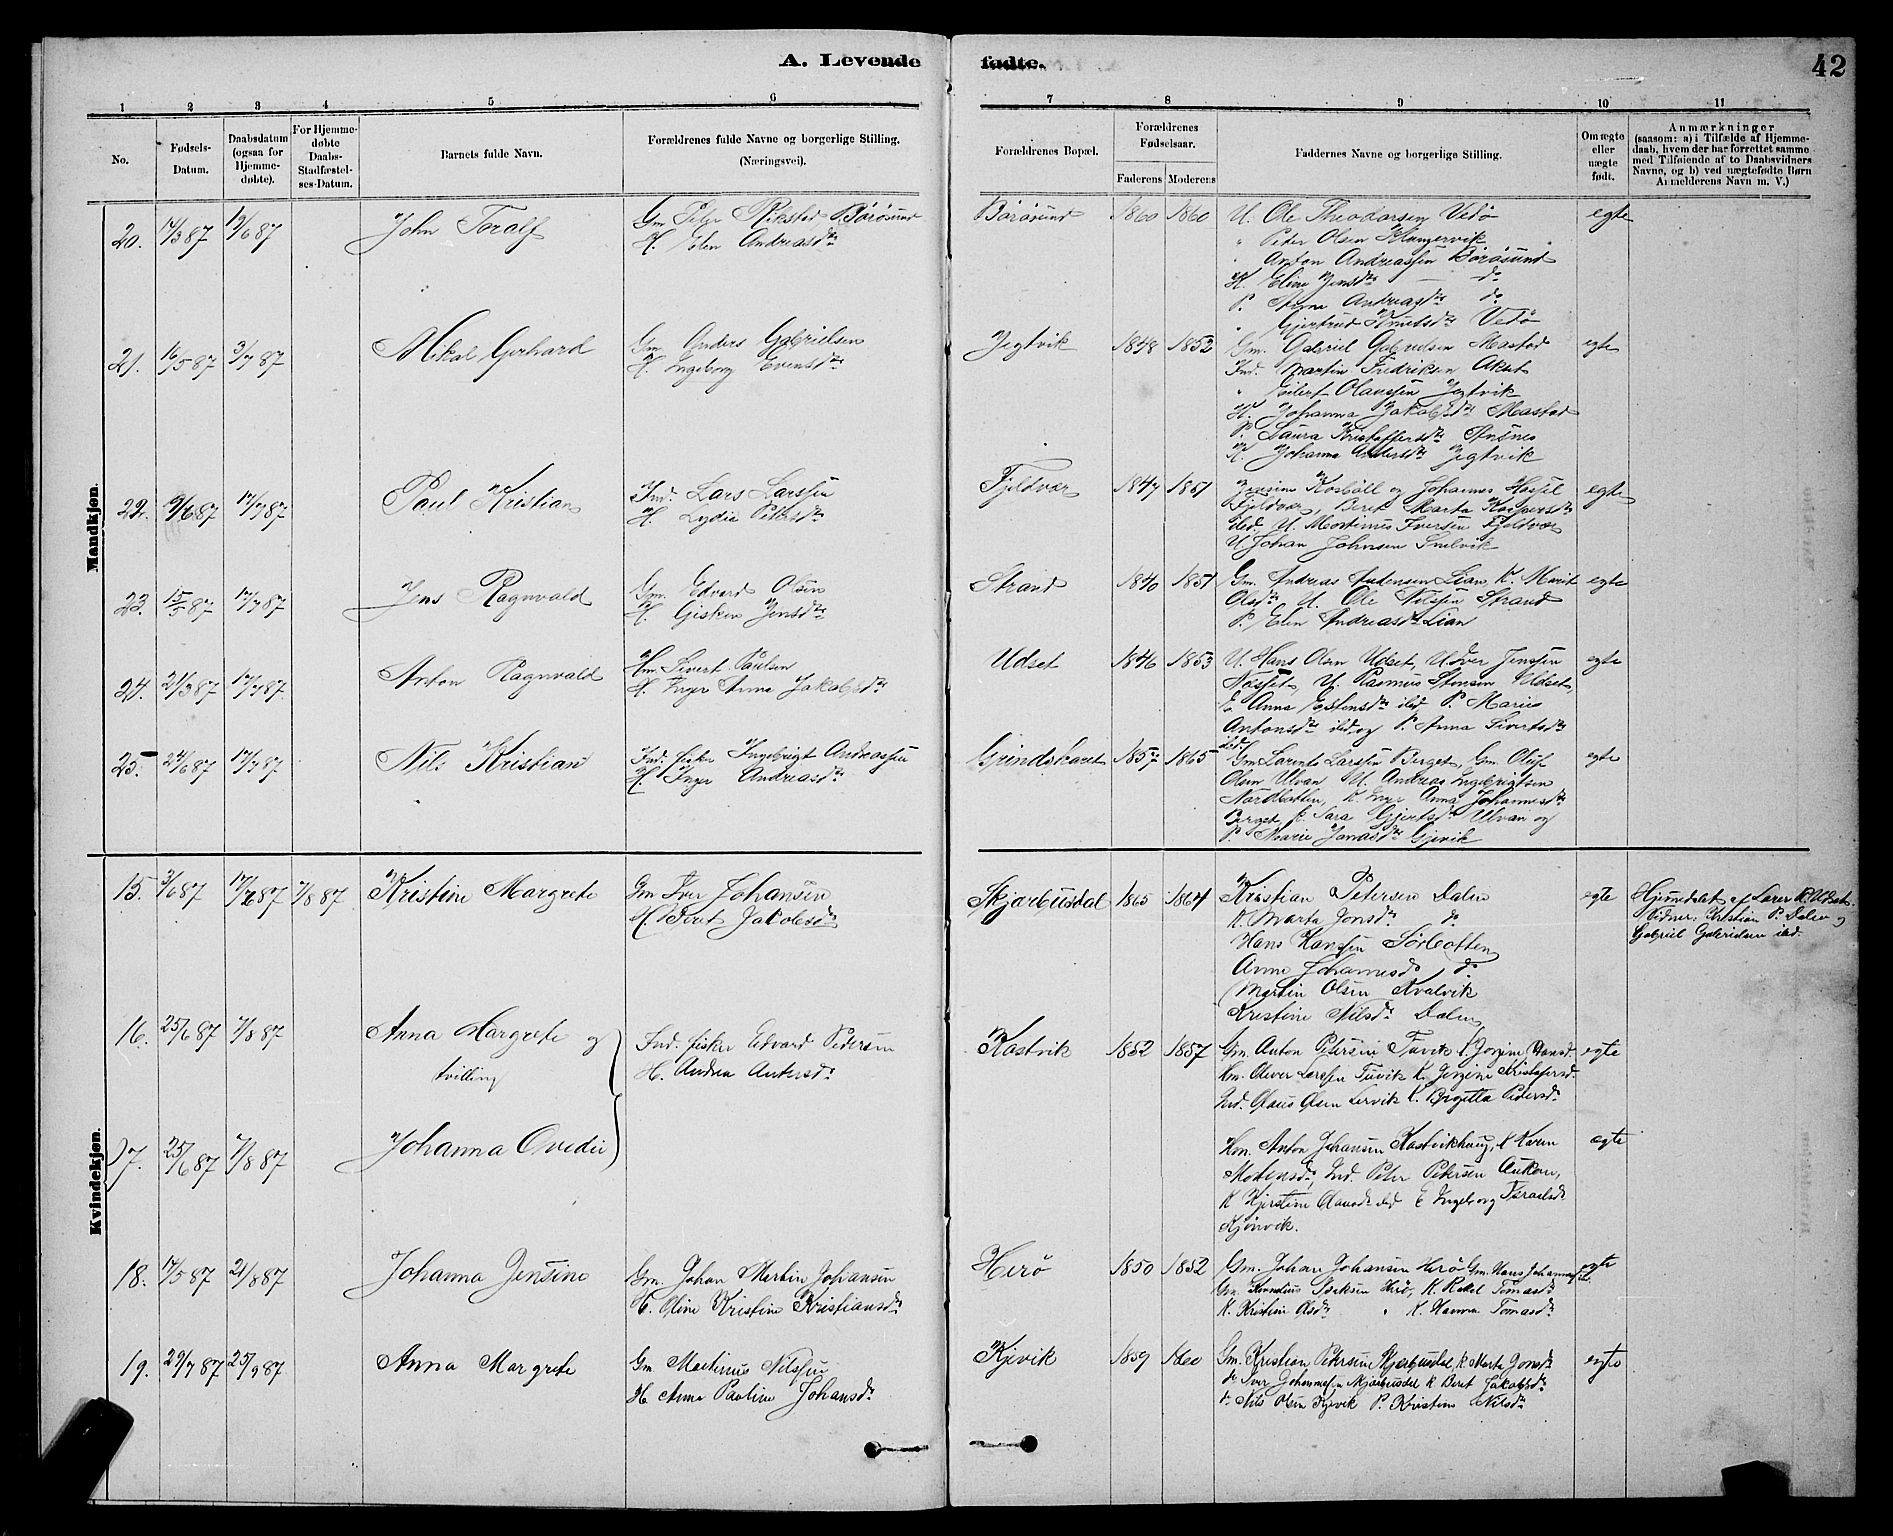 A. Levende fødte.
42
1 2 3 4 5 6 7 8 9 10 11
No.
Fødsels-
Datum.
Daabsdatum
(ogsaa for
Hjemme-
døbte).
For Hjemme-
døbte
Daabs-
Stadfæstel-
ses-Datum.
Barnets fulde Navn.
Forældrenes fulde Navne og borgerlige Stilling.
(Næringsvei).
Forældrenes Bopæl.
Forældrenes
Fødselsaar.
Faderens Moderens
Faddernes Navne og borgerlige Stilling.
Om ægte
eller
uægte
født.
Anmærkninger
(saasom: a) i Tilfælde af Hjemme-
daab, hvem der har forrettet samme
med Tilføiende af to Daabsvidners
Navne, og b) ved uægtefødte Børn
Anmelderens Navn m. V.)
Mandkjøn.
20. 14/3 87 19/6 87 John Toralf
Gm Peter Rikstad Börösund
H. Elen Andreasdtr
Börösund 1860 1860
U. Ole Theodorsen Vedö
" Peter Olsen Klungervik
" Anton Andreassen Börösund
H. Eline Jensdtr do
P. Anna Andreasdtr do
" Gjertrud Knutsdtr Vedö
egte
21. 16/5 87 3/7 87 Mikal Gerhard
Gm. Anders Gabrielsen
H. Ingeborg Evensdtr
Jegtvik 1848 1852
Gm. Gabriel Gabrielsen Mastad
Ind. Martin Fredriksen Akset
" Eilert Olaussen Jegtvik
H. Johanna Jakobsdtr Mastad
P. Laura Kristoffersdtr Ansnes
K. Johanna Andersdtr Jegtvik
egte
22. 9/6 87 17/7 87 Paul Kristian
Ind. Lars Larssen
H. Lydia Petersdtr
Fjeldvær 1847 1851
Jensine Kosböll og Johannes Hassel
Fjeldvær, Beret Marta Kaspersdtr
ibid. U. Mortinus Iversen Fjeldvær
U. Johan Johnsen Smlvik
egte
23. 15/5 87 17/7 87 Jens Ragnvald
Gm. Edvard Olsen
H. Gisken Jensdtr
Strand 1840 1851
Gm. Andreas Andersen Lian, K. Marit
Olsdtr U. Ole Nilssen Strand
P. Elen Andreasdtr Lian
egte
24. 21/3 87 17/7 87 Anton Ragnvald
Hm. Sivert Paulsen
H. Inger Anna Jakobsdtr
Udset 1846 1853
U. Hans Olsen Udset, U. Iver Jenssen
Næsset, U. Rasmus Stensen Udset,
E. Anna Estensdtr ibid P. Marie
Antonsdtr ibid. og P. Anna Sivertsdtr
ibid.
egte
25. 24/6 87 17/7 87 Nils Kristian
Ind. fisker Ingebrigt Andreassen
H. Inger Andreasdtr
Grindskaret 1857 1865
Gm Lorents Larssen Berget, Gm. Oluf
Olsen Ulvan U. Andreas Ingebrigtsen
Nordbotten, K. Inger Anna Johannesdtr
Berget K. Sara Gjertsdtr Ulvan og
P. Marie Jonasdtr Gjevik
egte
Kvindekjøn.
15. 3/6 87 17/6 87 7/8 87 Kristine Margrete
Gm Iver Johansen
H. Beret Jakobsdtr
Skjærbusdal 1865 1864
Kristian Petersen Dalen
K. Marta Jonsdtr do
Hans Hanssen Sörbotten
Anne Johannesdtr do
Martin Olsen Kvalvik
Kristine Nilsdtr Dalen
egte
Hjemedøbt af Lærer R. Udset.
Vidner: Kristian P. Dalen og
Gabriel Gabrielsen ibd.
16. 25/6 87 7/8 87 Anna Margrete og
tvilling
Ind. fisker Edvard Pedersen
H. Andrea Antersdtr
Kastvik 1852 1857
Gm. Anton Petersen Tuvik K. Jorgine Hansdtr
Hm. Oliver Larssen Tuvik K. Jorgine Kristofersdtr
Ind. Olaus Olsen Lervik K. Birgitta Pedersdtr
egte
17. 25/6 87 7/8 87 Johanna Ovedie
Hm. Anton Johansen Kastvikhaug, K Karen
Mortensdtr, Ind. Peter Petersen Aukan,
K. Kjerstine Olausdtr ibid E Ingeborg Israelsdtr
Kjönvik.
egte
18. 17/5 87 21/8 87 Johanna Jensine
Gm. Johan Martin Johansen
H. Oline Kristine Kristiansdtr
Herö 1850 1852
Gm. Johan Johansen Herö Gm. Hans Johannessen do.
Gm. Kornelius Isaksen Herö, K. Rakel Tomasdtr
K. Kristine Olsdtr " K. Hanna Tomasdtr
egte
19. 29/7 87 25/9 87 Anna Margrete
Gm Martinus Nilssen
H. Anne Pauline Johansdtr
Kjevik 1859 1860
Gm. Kristian Petersen Skjærbusdal, K. Marta Jonsdtr
do Iver Johannessen Skjærbusdal K Beret Jakobsdtr
do Nils Olsen Kjevik P. Kristine Nilsdtr
egte